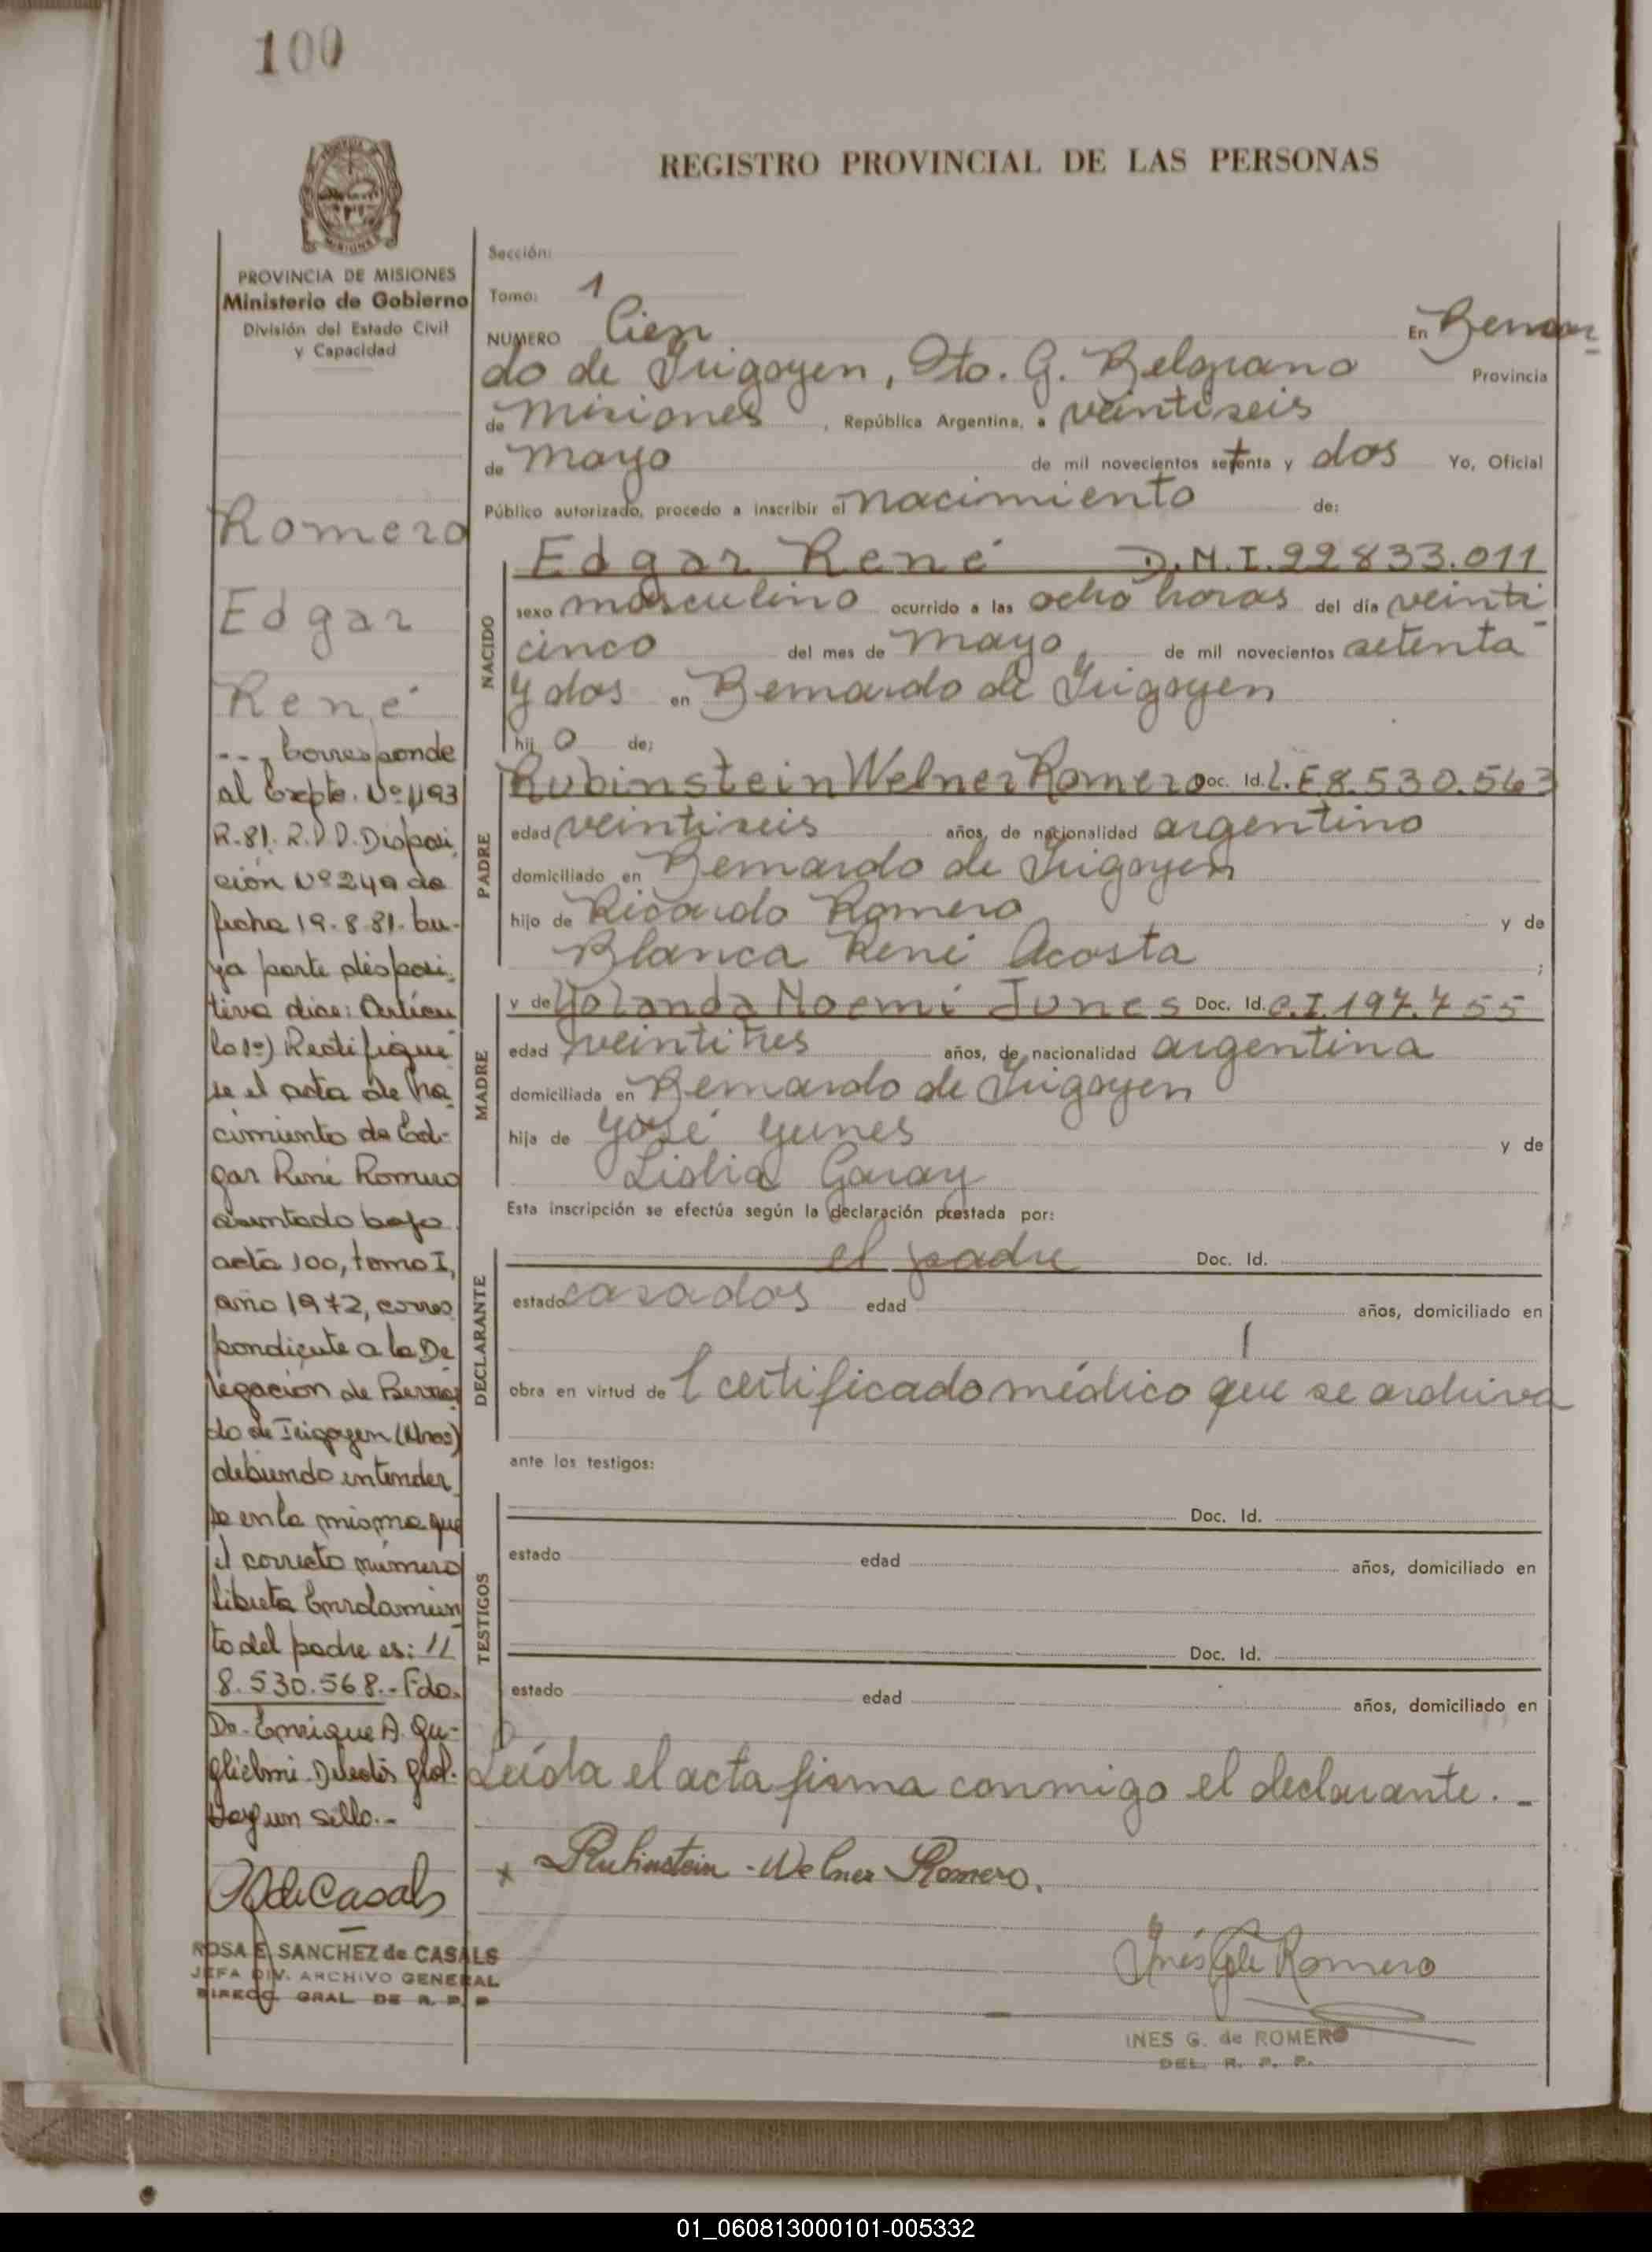 100
REGISTRO PROVINCIAL DE LAS PERSONAS
MISIONES
PROVINCIA DE MISIONES
Ministerio de Gobierno
División del Estado Civil
y Capacidad
Romero
Edgar
René
--- Corresponde
al Expte. Nº 1193
R.81. R.P.P. Disposi
ción Nº 249 de
fecha 19-8-81. Cu-
ya parte disposi
tiva dice: Artícu
lo 1º) Rectifíque
se el acta de na
cimiento de Ed-
gar René Romero
asentado bajo
acta 100, tomo I,
año 1972, corres
pondiente a la De
legacion de Bernar
do de Irigoyen (Mnes)
debiendo entender
se en la misma que
el correcto número
libreta Enrolamien
to del padre es:
8.530.568.- Fdo.
Dr. Enrique A. Gu-
glielmi
Hay un sello.-
ROSA E. SANCHEZ de CASALS
JEFA DIV. ARCHIVO GENERAL
DIRECC. GRAL DE R. P. P
Sección:
Tomo: 1
NUMERO Cien En Bernar-
do de Irigoyen, Dto. G. Belgrano Provincia
de Misiones, República Argentina, a veintiseis
de mayo de mil novecientos setenta y dos Yo, Oficial
Público autorizado, procedo a inscribir el nacimiento de:
NACIDO
Edgar René D.N.I. 22833.011
sexo masculino ocurrido a las ocho horas del día veinti-
cinco del mes de mayo, de mil novecientos setenta
y dos en Bernardo de Irigoyen
hij o de:
PADRE
Rubinstein Welner Romero Doc. Id. L.E 8.530.563
edad veintiseis años, de nacionalidad argentino
domiciliado en Bernardo de Irigoyen
hijo de Ricardo Romero y de
Blanca René Acosta ;
MADRE
y de Yolanda Noemí Junes Doc. Id. C.I. 197.755
edad veintitres años, de nacionalidad argentina
domiciliada en Bernardo de Irigoyen
hija de José Yunes y de
Lidia Garay
Esta inscripción se efectúa según la declaración prestada por:
DECLARANTE
el padre Doc. Id.
estado casados edad años, domiciliado en
obra en virtud de l certificado médico que se archiva
ante los testigos:
TESTIGOS
Doc. Id.
estado edad años, domiciliado en
Doc. Id.
estado edad años, domiciliado en
Leída el acta firma conmigo el declarante.-
x Rubinstein - Welner Romero.
Inés G de Romero
INES G. de ROMERO
DEL. R. P. P.
01_060813000101-005332